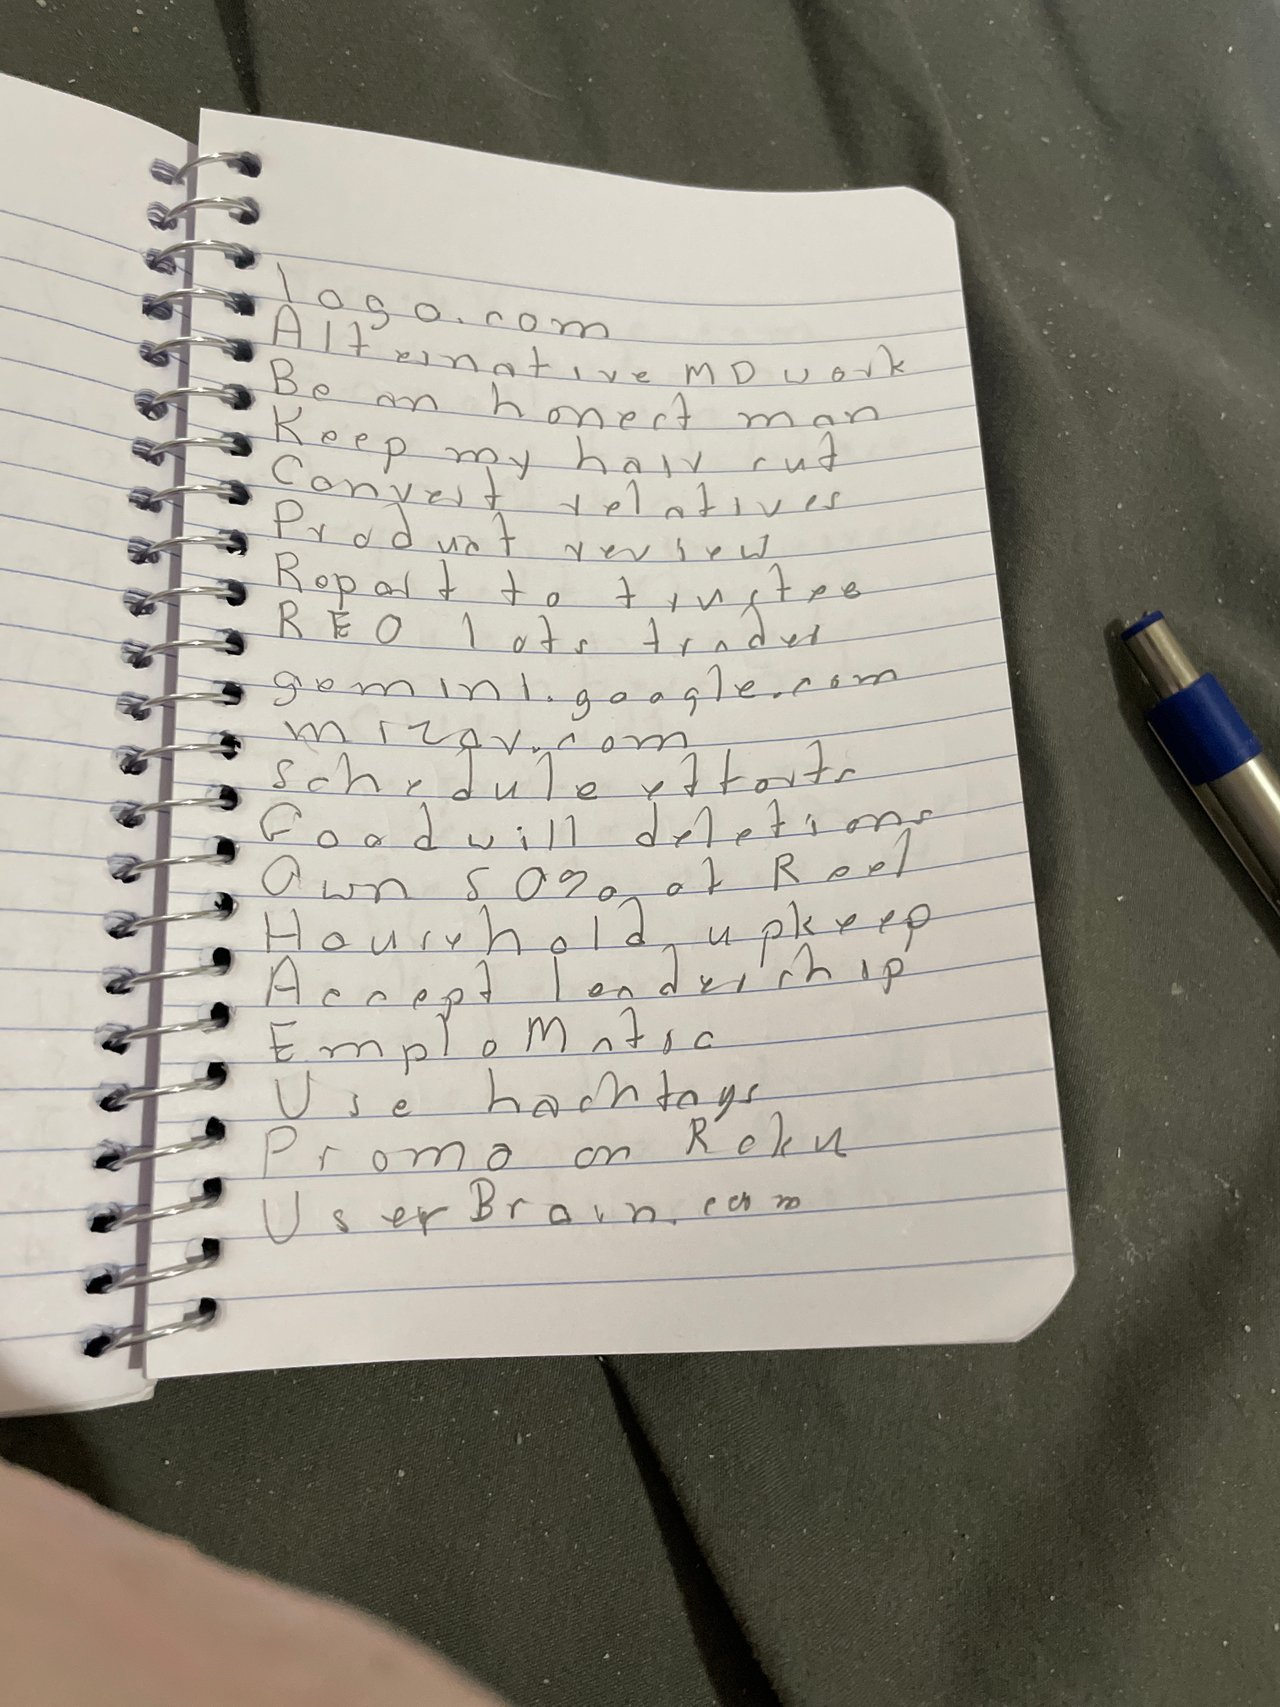 logo.com
Alternative MD work
Be an honest man
Keep my hair cut
Convert relatives
Product review
Report to trustee
REO lots trader
gemini.google.com
mizav.com
Schedule efforts
Goodwill deletions
Own 50% of Reel
Household upkeep
Accept leadership
EmploMatic
Use hashtags
Promo on Roku
UserBrain.com